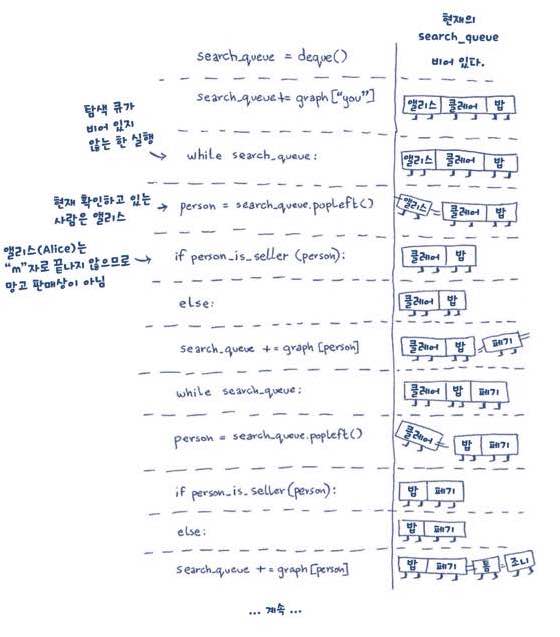 현재의
search_queue
search_queue = deque()
비어 있다.
search_queue += graph["you"]
앨리스 클레어 밥
탐색 큐가
비어 있지
않는 한 실행
while search_queue:
앨리스 클레어 밥
현재 확인하고 있는
사람은 앨리스
person = search_queue.popleft()
앨리스 클레어 밥
앨리스(Alice)는
"m"자로 끝나지 않으므로
망고 판매상이 아님
if person_is_seller (person):
클레어 밥
else:
클레어 밥
search_queue += graph [person]
클레어 밥 페기
while search_queue:
클레어 밥 페기
person = search_queue.popleft()
클레어 밥 페기
if person_is_seller (person):
밥 페기
else:
밥 페기
search_queue += graph[person]
밥 페기 톰 조니
... 계속 ...